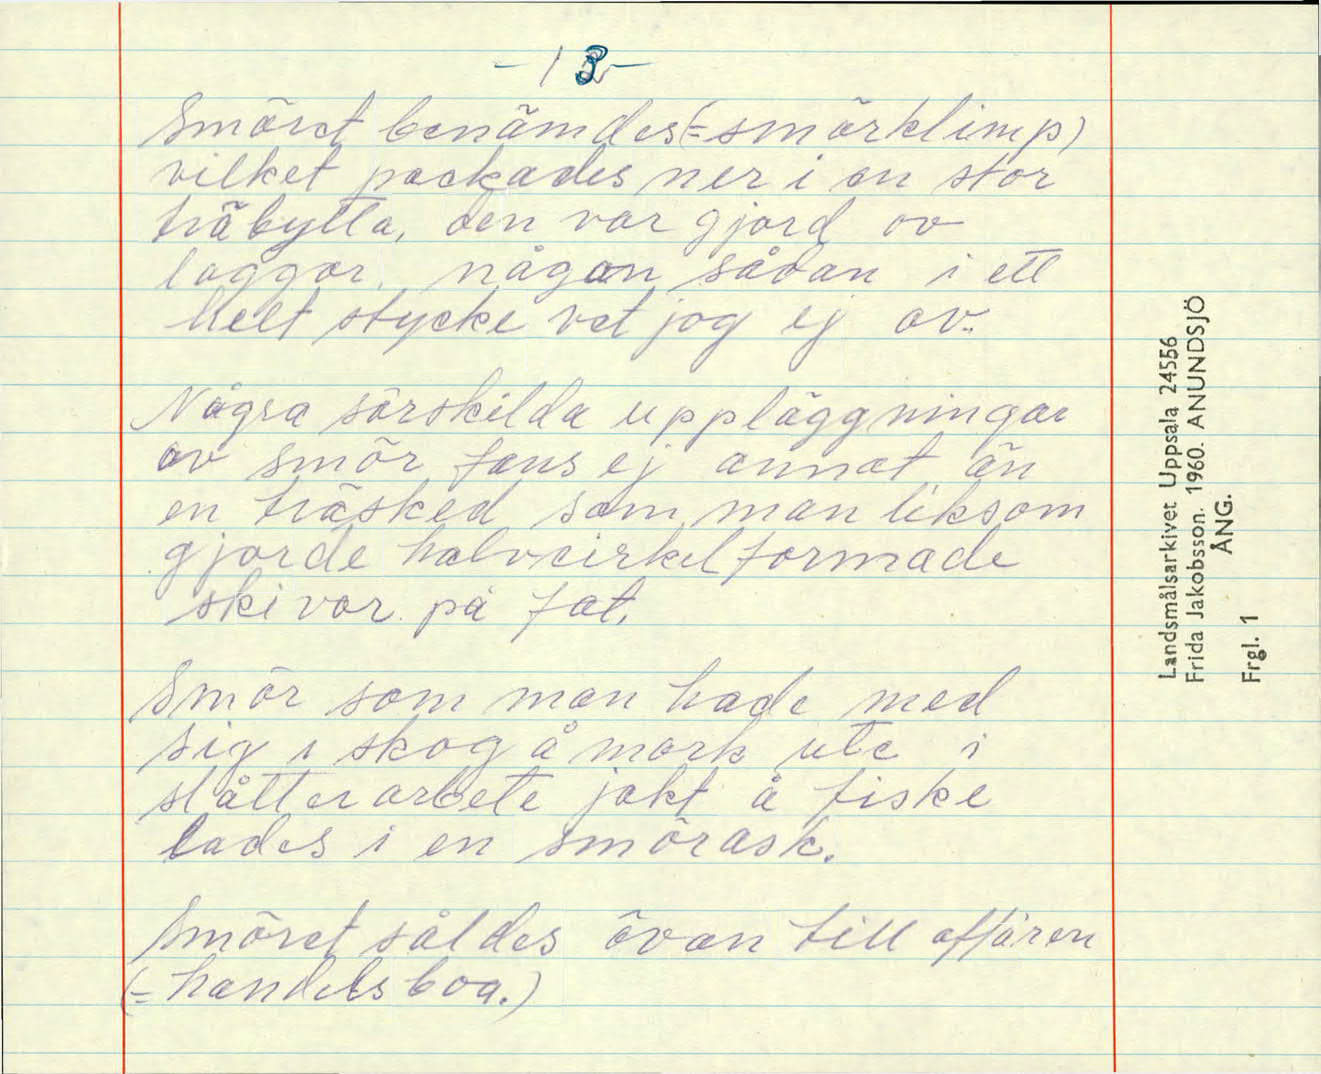 - 13 -
Smöret benämdes (= smörklimp)
vilket packades ner i en stor
träbytta, den var gjord av
laggar, någon sådan i ett
helt stycke vet jag ej av.
Några särskilda uppläggningar
av smör fans ej annat än
en träsked som man liksom
gjorde halvcirkelformade
skivor på fat.
Smör som man hade med
sig i skog å mark ute i
slåtterarbete jakt å fiske
lades i en smörask.
Smöret såldes även till affären
(= handelsboa.)
Landsmålsarkivet Uppsala 24556
Frida Jakobsson. 1960. ANUNDSJÖ
ÅNG.
Frgl. 1